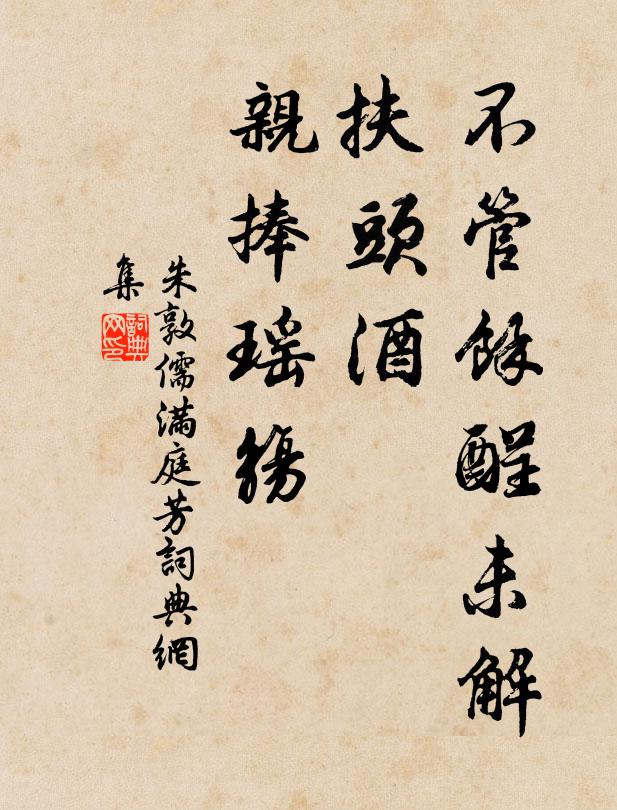 不管餘酲未解
扶頭酒
親捧瑤觴
朱敦儒滿庭芳詞典網
集
詞典網印